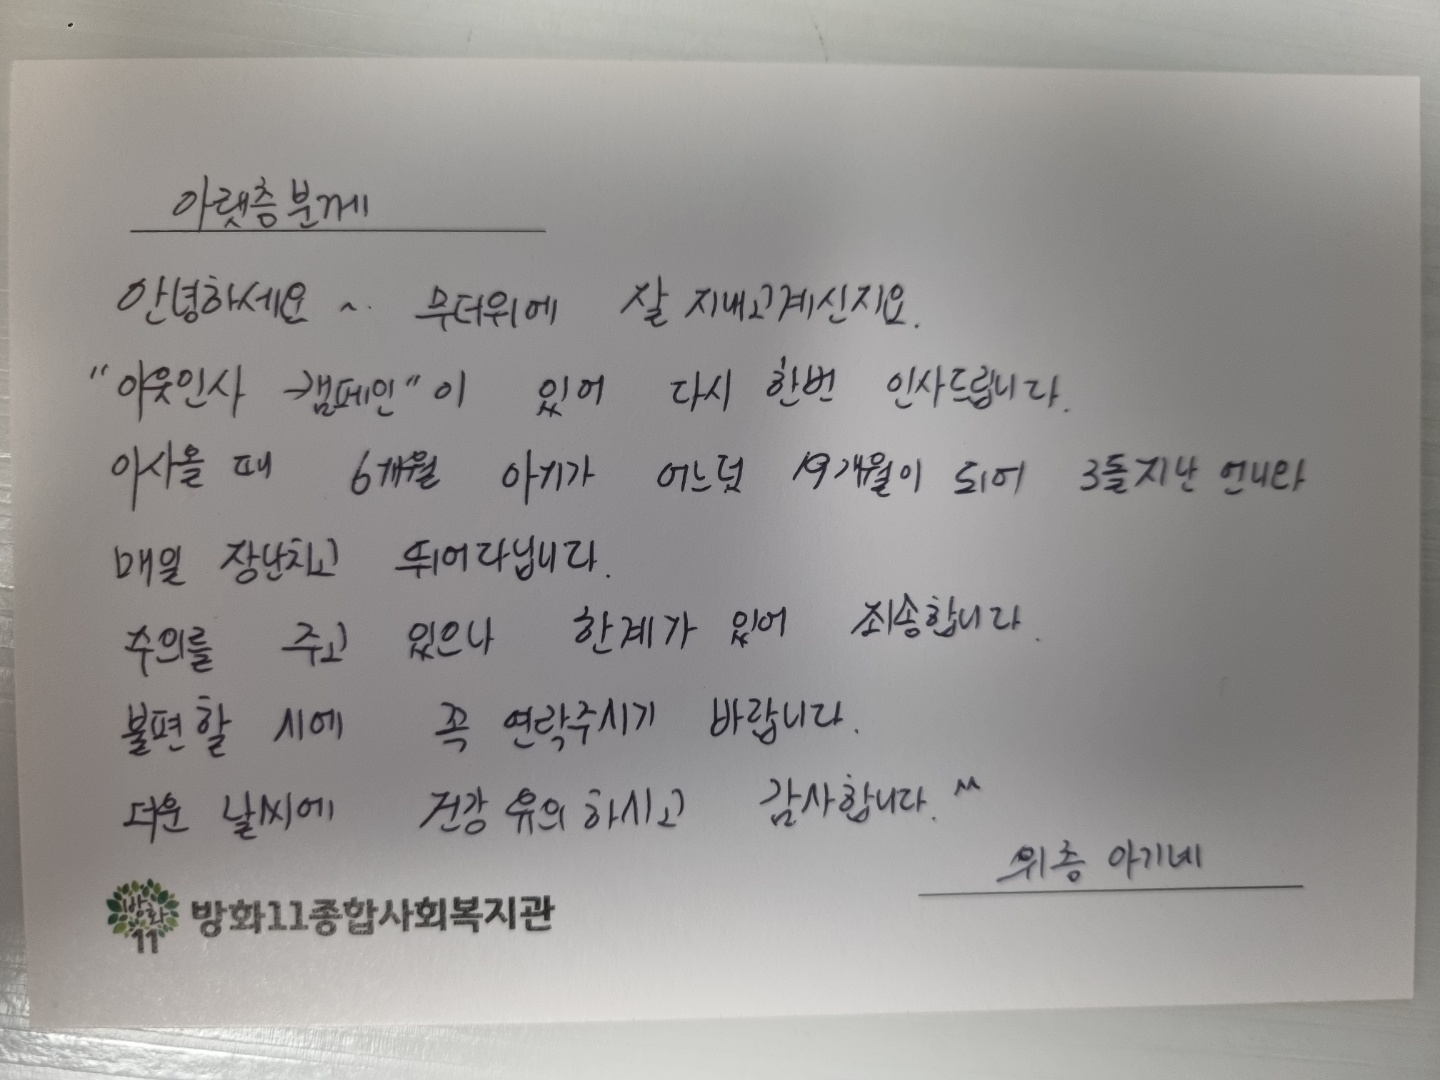 아랫층분께
안녕하세요 ~.. 무더위에 잘 지내고계신지요.
"이웃인사 캠페인"이 있어 다시 한번 인사드립니다.
이사올 때 6개월 아기가 어느덧 19개월이 되어 3돌지난 언니랑
매일 장난치고 뛰어다닙니다.
주의를 주고 있으나 한계가 있어 죄송합니다.
불편할 시에 꼭 연락주시기 바랍니다.
더운 날씨에 건강 유의하시고 감사합니다. ^^
위층 아기네
방화11 방화11종합사회복지관